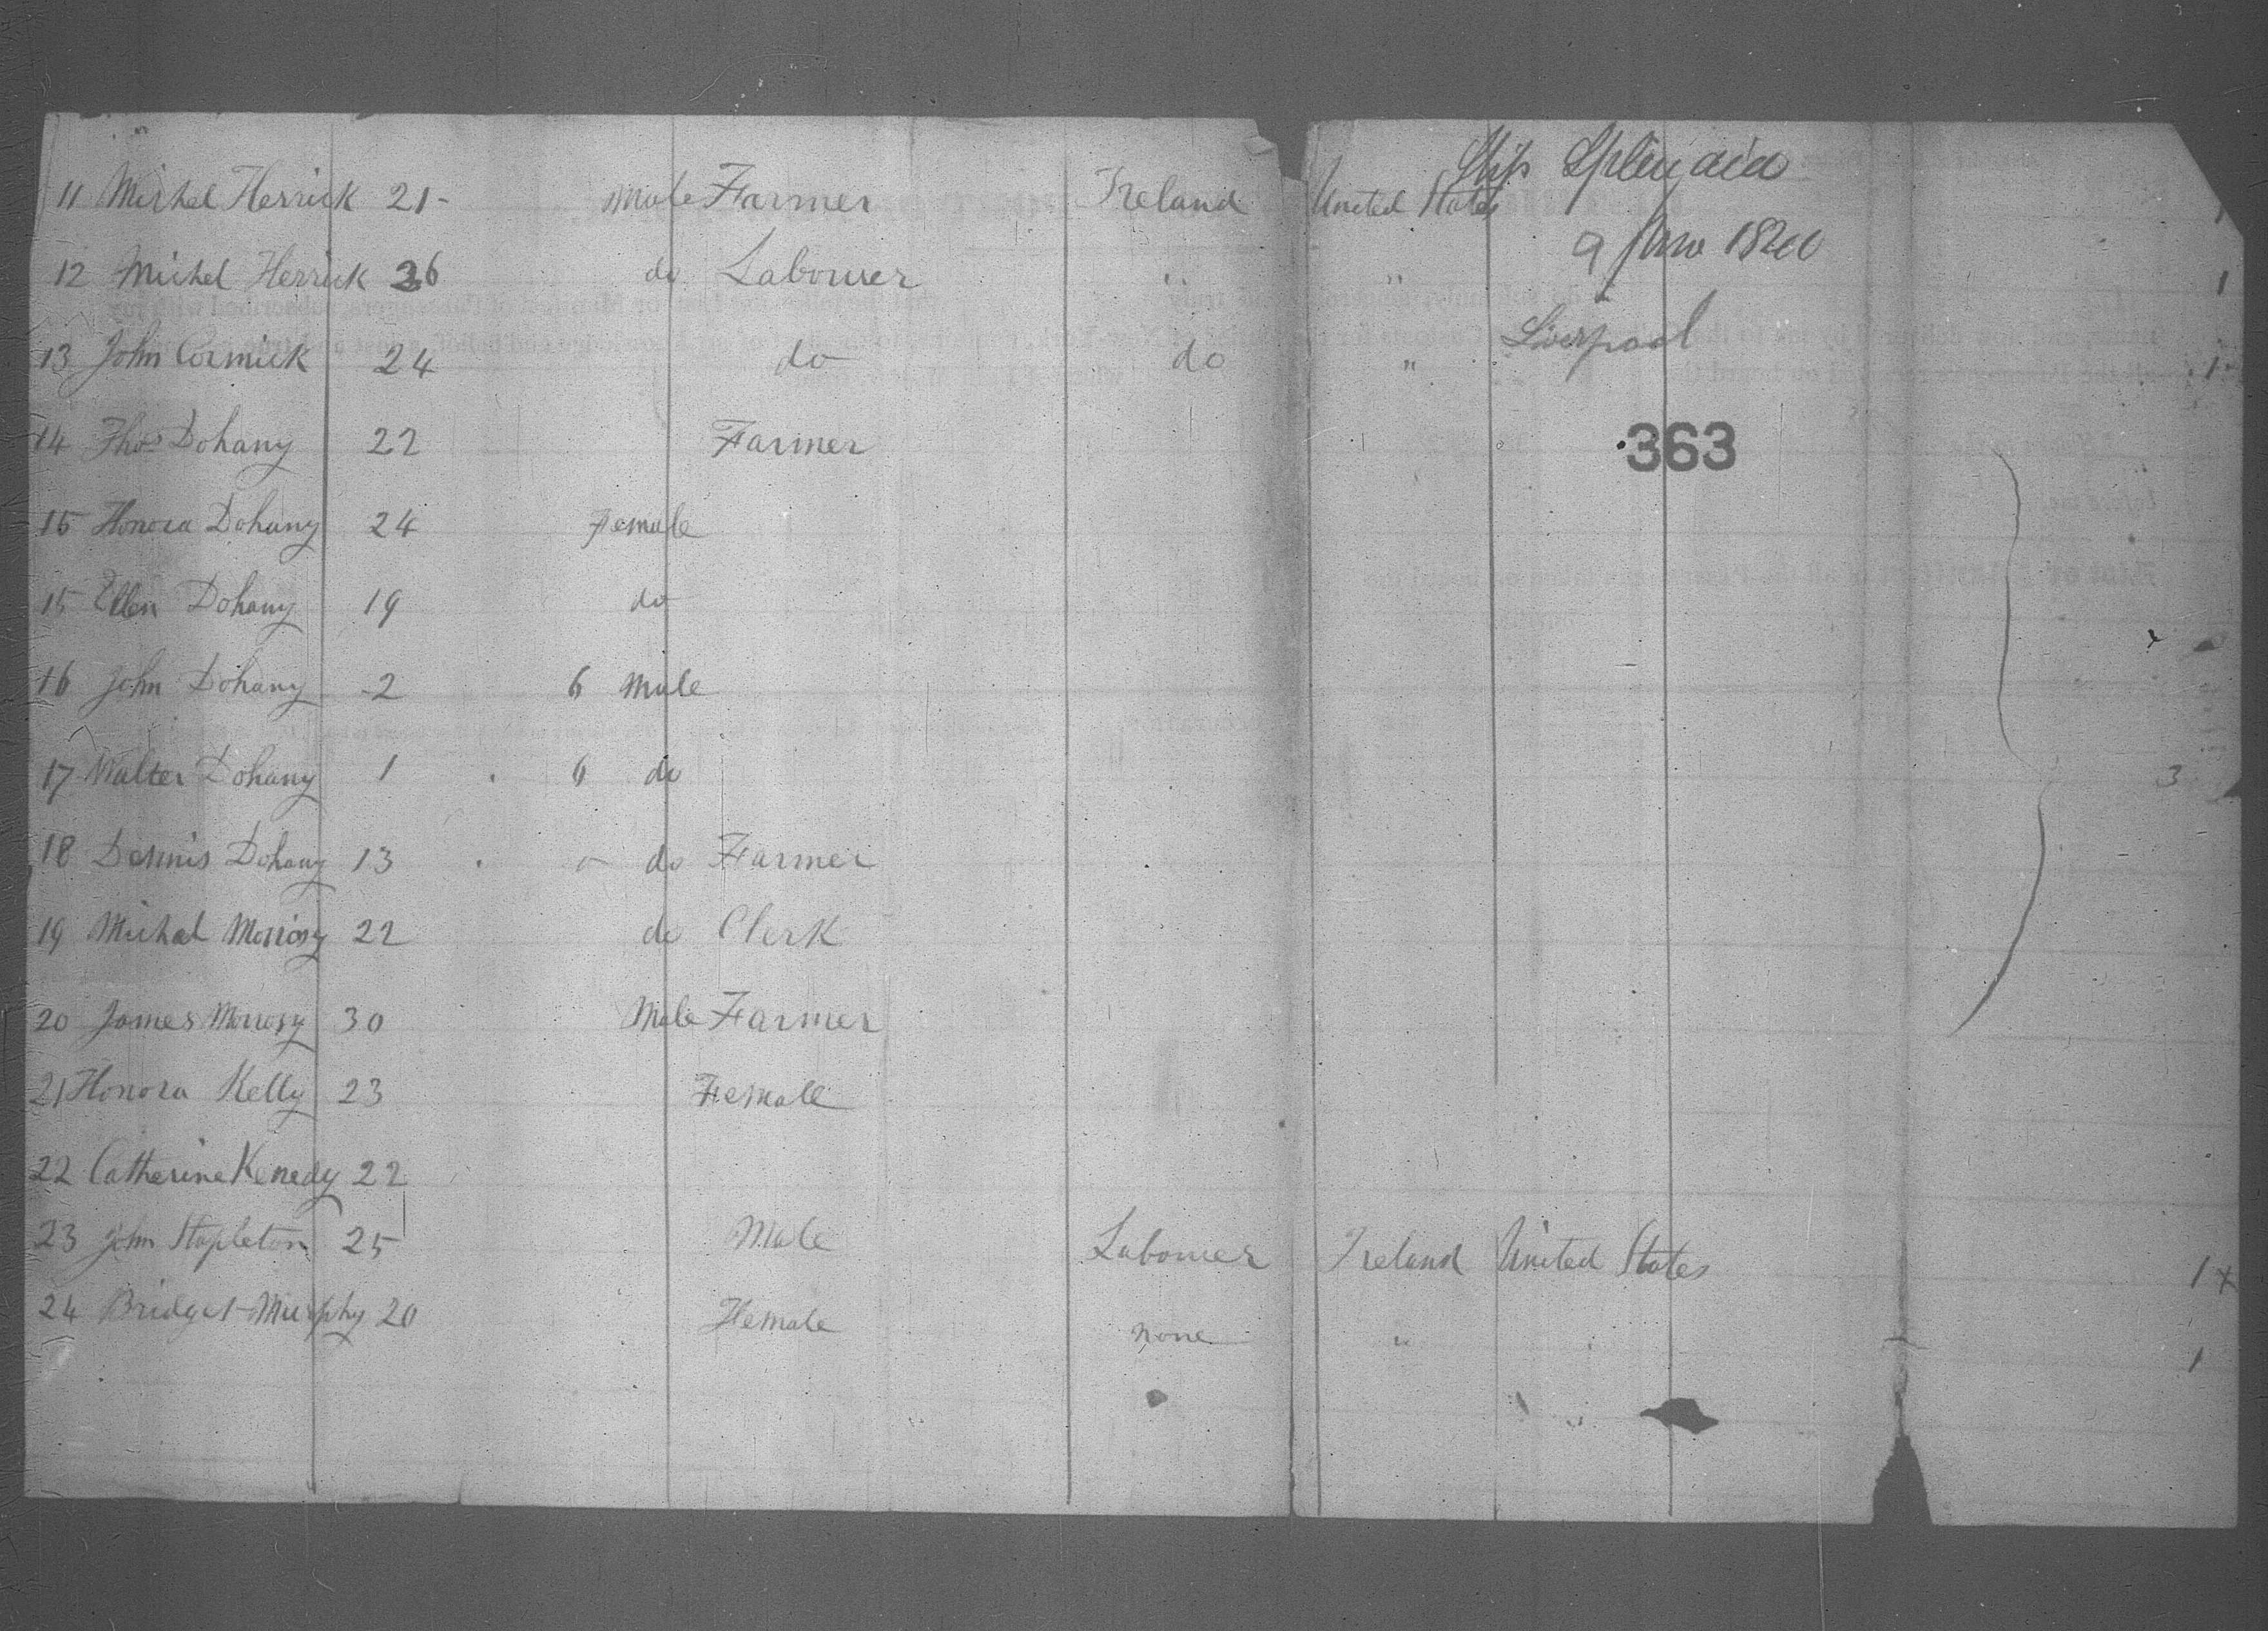 Ship Splendid
11 Michel Herrick 21- Male Farmer Ireland United States
12 Michel Herrick 26 do Labourer " " 1
Liverpool
13 John Cormick 24 do do " 1
14 Thos Dohany 22 Farmer
363
15 Honora Dohany 24 Female
15 Ellen Dohany 19 do
16 John Dohany 2 6 Male
17 Walter Dohany 1 6 do 3
18 Dennis Dohany 13 do Farmer
19 Michal 22 do Clerk
20 James 30 Male Farmer
21 Honora Kelly 23 Female
22 Catherine Kenedy 22
23 John Stapleton 25 Male Labourer Ireland United States 1 x
24 Bridget Murphy 20 Female none " 1